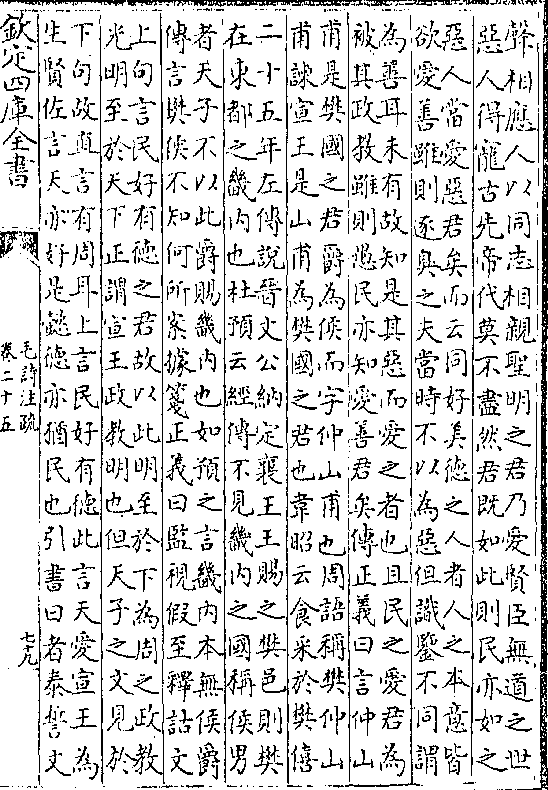 聲相應人以同志相親聖明之君乃愛賢臣無道之世
惡人得寵古先帝代莫不盡然君既如此則民亦如之
惡人當愛惡君矣而云同好美徳之人者人之本意皆
欲愛善雖則逐臭之夫當時不以為惡但識鑒不同謂
為善耳未有故知是其惡而愛之者也且民之愛君為
被其政教雖則愚民亦知愛善君矣傳正義曰言仲山
甫是樊國之君爵為侯而字仲山甫也周語稱樊仲山
甫諫宣王是山甫為樊國之君也韋昭云食采於樊僖
二十五年左傳說晉文公納定襄王王賜之樊邑則樊
在東都之畿内也杜預云經傳不見畿内之國稱侯男
者天子不以此爵賜畿内也如預之言畿内本無侯爵
傳言樊侯不知何所案據箋正義曰監視假至釋詁文
上句言民好有徳之君故以此明至於下為周之政教
光明至於天下正謂宣王政教明也但天子之文見於
下句故直言有周耳上言民好有徳此言天愛宣王為
生賢佐言天亦好是懿徳亦猶民也引書曰者泰誓文
欽定四庫全書
毛詩注疏
卷二十五
七九